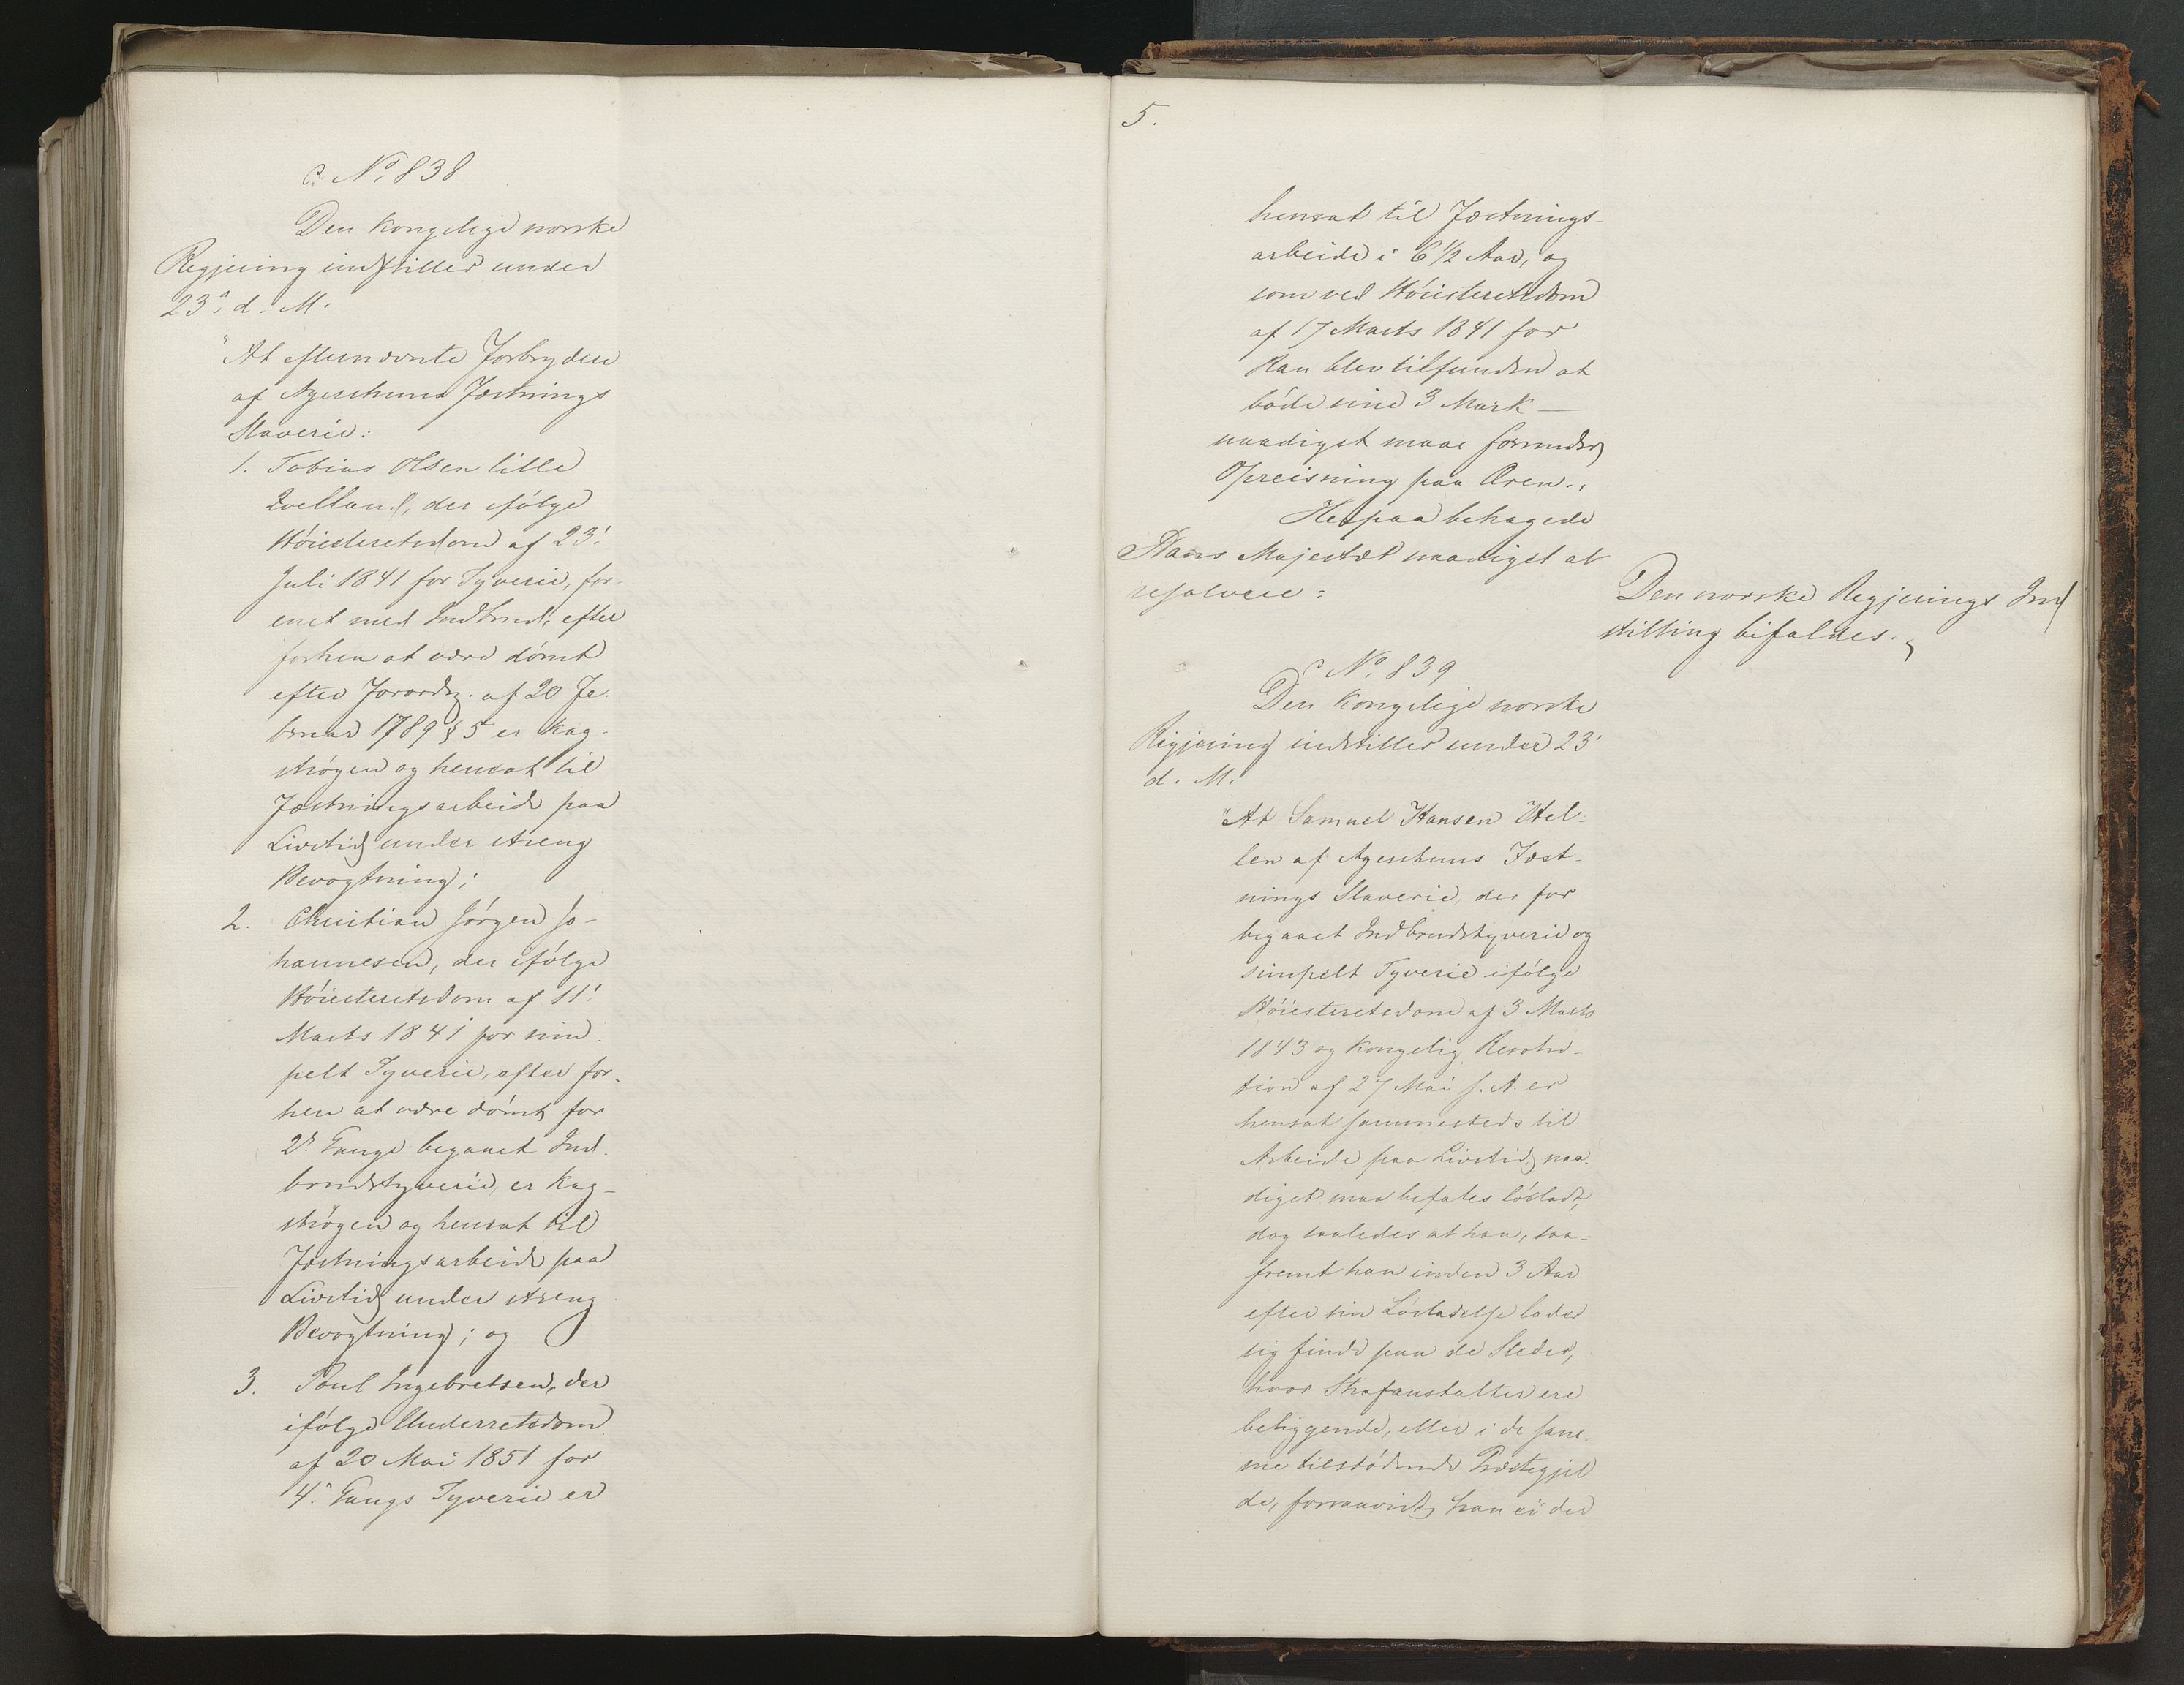 C. No. 838
Den Kongelige norske
Regjering indstiller under
23. d. M.
"At efternævnte Forbrydere
af Agershuus Fæstnings
Slaverie:
1. Tobias Olsen lille
Qvelland, der ifølge
Høiesteretsdom af 23.
Juli 1841 for Tyverie, for-
enet med Indbrud, efter
forhen at være dømt
efter Forordn. af 20 Fe-
bruar 1789 § 5 er Kag-
strøgen og hensat til
Fæstningsarbeide paa
Livstid under streng
Bevogtning;
2. Christian Jørgen Jo-
hannesen, der ifølge
Høiesteretsdom af 11.
Marts 1841 for sim-
pelt Tyverie, efter for-
hen at være dømt for
2. Gange begaaet Ind-
brudstyverie, er Kag-
strøgen og hensat til
Fæstningsarbeide paa
Livstid under streng
Bevogtning; og
3. Poul Ingebretsen, der
ifølge Underretsdom
af 20 Mai 1851 for
4. Gangs Tyverie er
5.
hensat til Fæstnings-
arbeide i 6 1/2 Aar, og
som ved Høiesteretsdom
af 17 Marts 1841 for
Ran blev tilfunden at
bøde sine 3 Mark —
naadigst maae forundes
Opreisning paa Æren."
Herpaa behagede
Hans Majestæt naadigst at
resolvere:
Den norske Regjerings Ind-
stilling bifaldes.
C. No. 839
Den Kongelige norske
Regjering indstiller under 23.
d. M.
"At Samuel Hansen Hel-
len af Agershuus Fæst-
nings Slaverie, der for
begaaet Indbrudstyverie og
simpelt Tyverie ifølge
Høiesteretsdom af 3 Marts
1843 og Kongelig Resolu-
tion af 27 Mai s. A. er
hensat sammesteds til
Arbeide paa Livstid, naa-
digst maa befales løsladt,
dog saaledes at han, saa-
fremt han inden 3 Aar
efter sin Løsladelse lader
sig finde paa de Steder,
hvor Strafanstalter ere
beliggende, eller i de sam-
me tilstødende Præstegjel-
de, forsaavidt han ei der